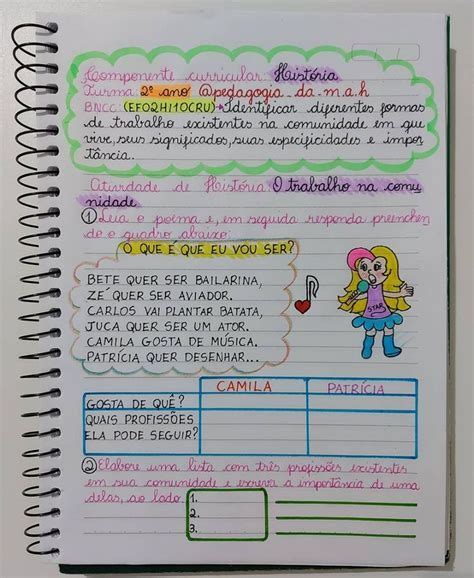 Componente curricular: História
Turma: 2º ano @pedagogia_da-m.a.h
BNCC: (EF02HI10CRU) → Identificar diferentes formas
de trabalho existentes na comunidade em que
vive, seus significados, suas especificidades e impor
tância.
Atividade de História: O trabalho na comu
nidade
1 Leia o poema e, em seguida responda preenchen
do o quadro abaixo:
O QUE É QUE EU VOU SER?
BETE QUER SER BAILARINA,
ZÉ QUER SER AVIADOR.
CARLOS VAI PLANTAR BATATA,
JUCA QUER SER UM ATOR.
CAMILA GOSTA DE MÚSICA.
PATRÍCIA QUER DESENHAR...
STAR
CAMILA PATRÍCIA
GOSTA DE QUÊ?
QUAIS PROFISSÕES
ELA PODE SEGUIR?
2 Elabore uma lista com três profissões existentes
em sua comunidade e escreva a importância de uma
delas, ao lado.
1.
2.
3.